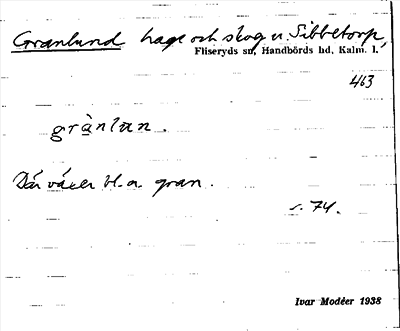 Granlund hage och skog u. Sibbetorp,
Fliseryds sn, Handbörds hd, Kalm. l.
463
grànlan.
Där växer bl. a. gran.
s. 74.
Ivar Modéer 1938